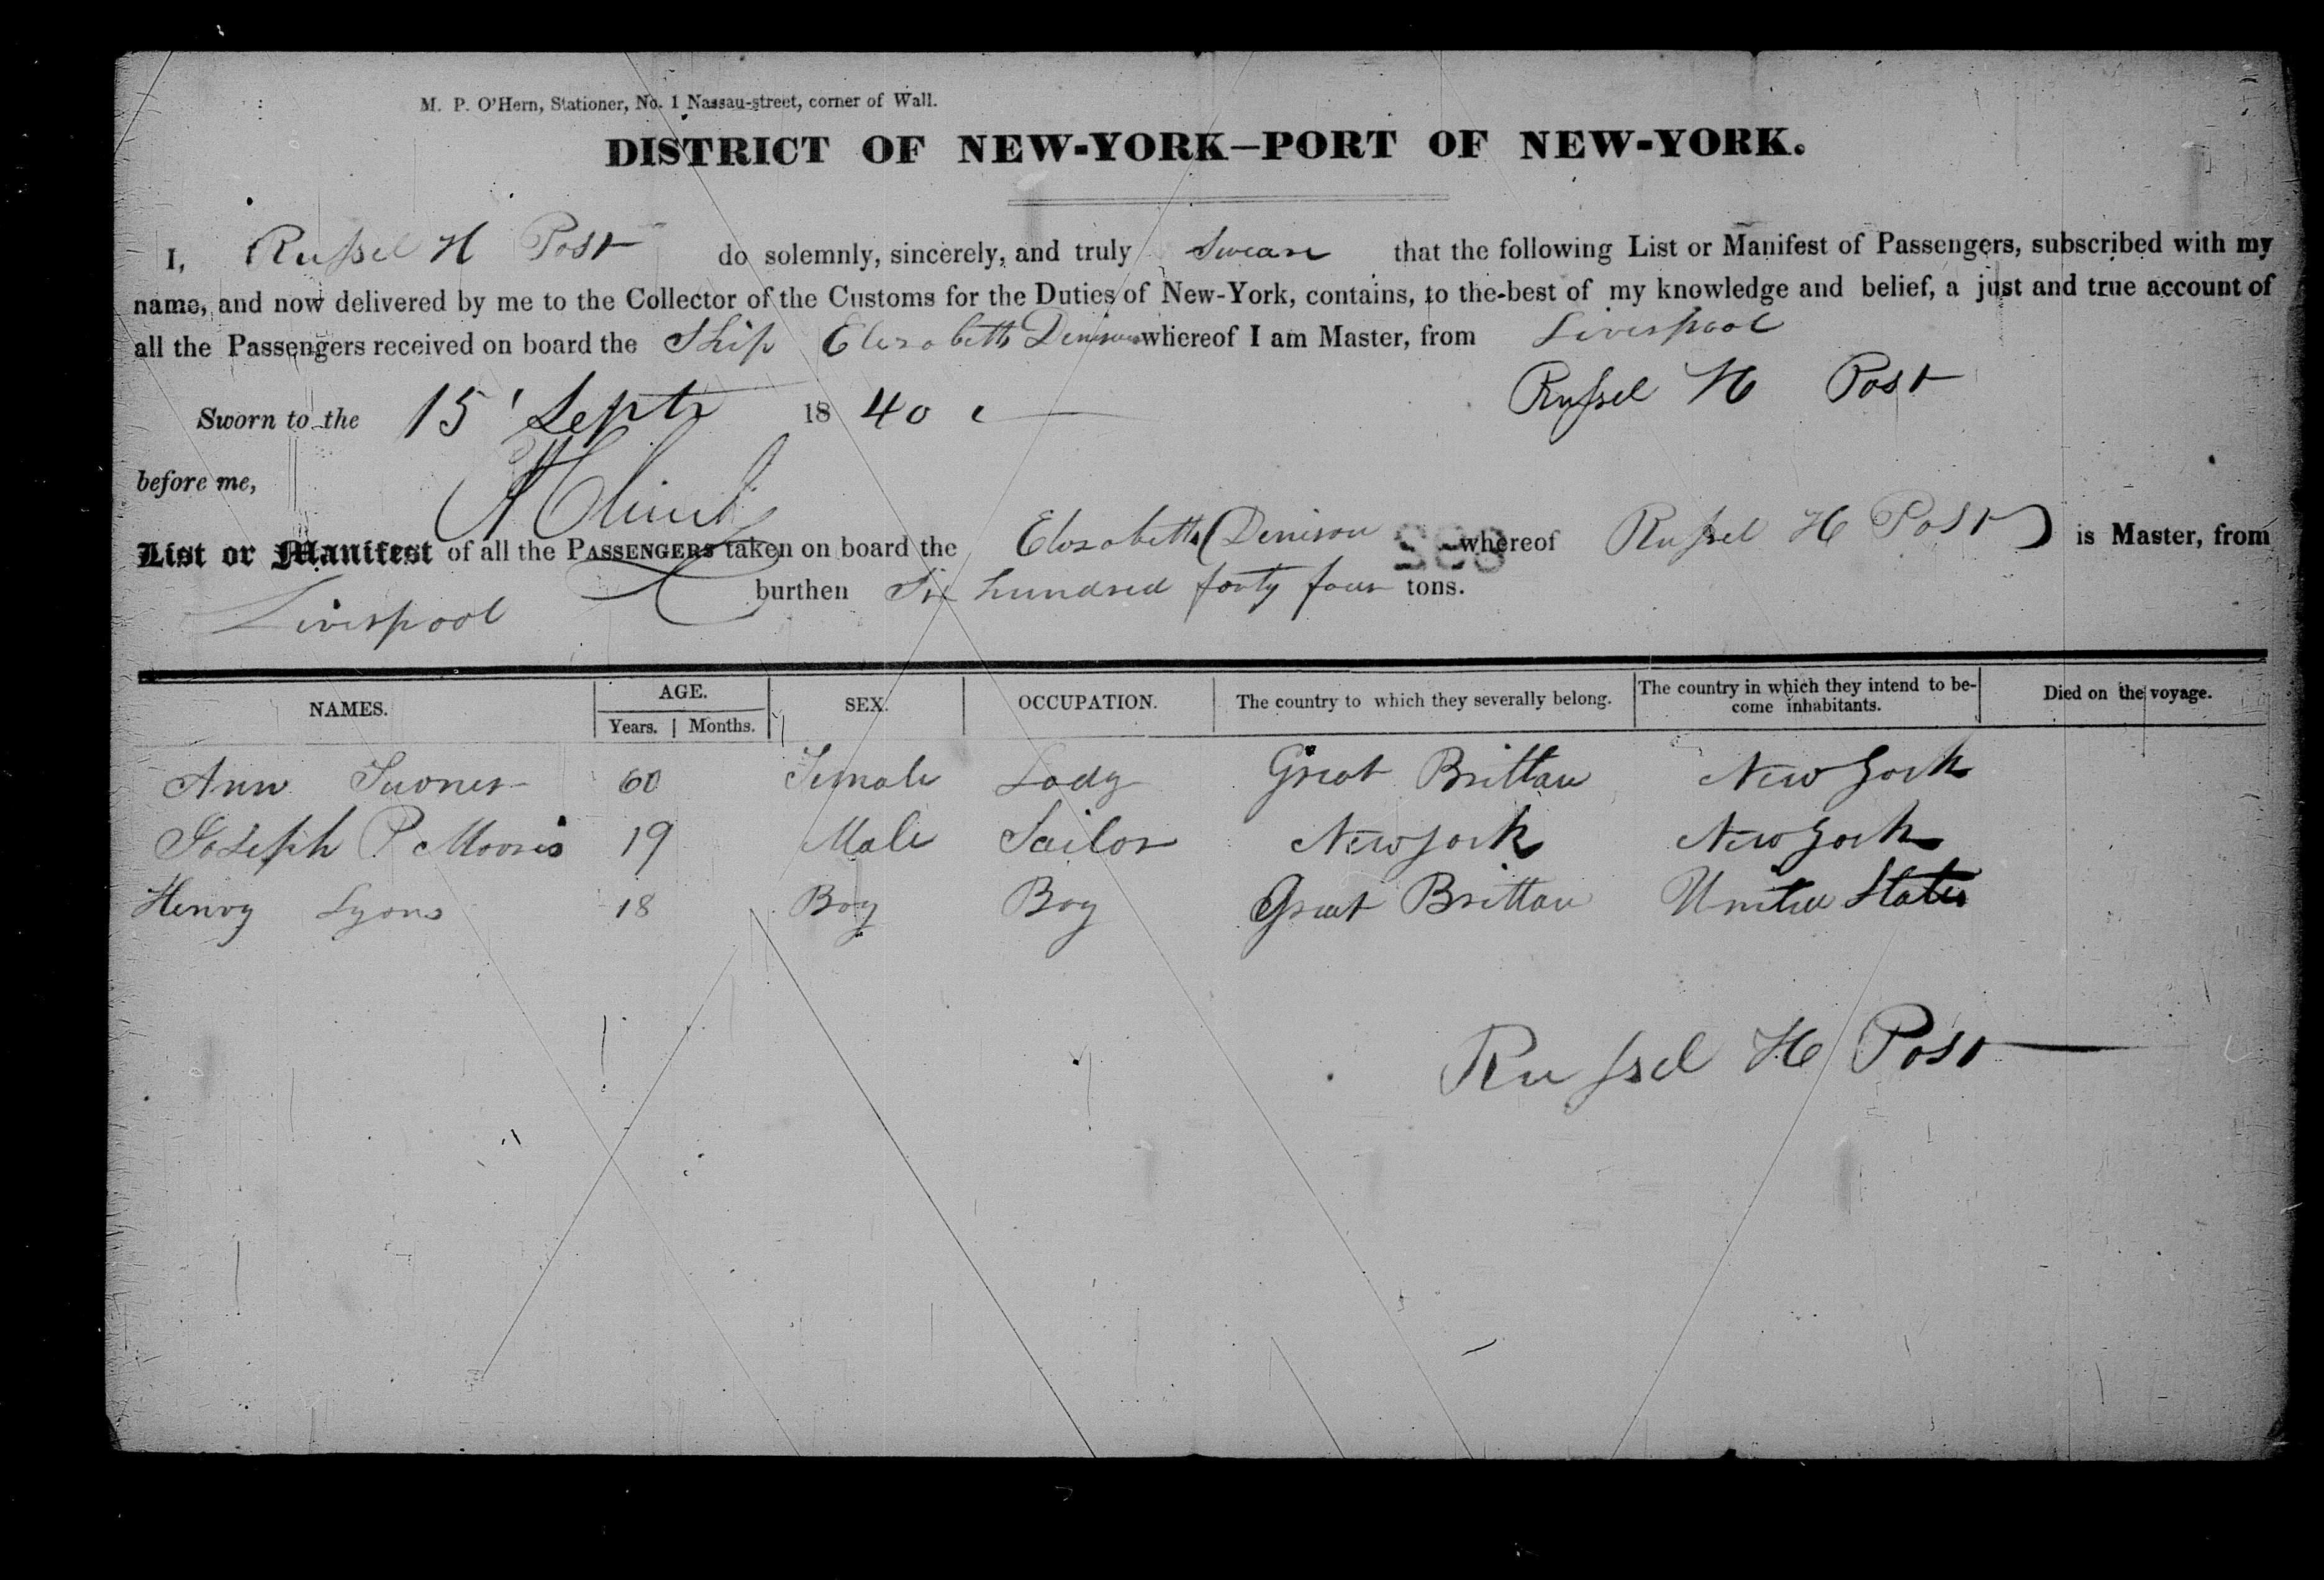 M. P. O'Hern, Stationer, No. 1 Nassau-street, corner of Wall.
DISTRICT OF NEW-YORK—PORT OF NEW-YORK.
I, Russel H Post do solemnly, sincerely, and truly Swear that the following List or Manifest of Passengers, subscribed with my
name, and now delivered by me to the Collector of the Customs for the Duties of New-York, contains, to the best of my knowledge and belief, a just and true account of
all the Passengers received on board the Ship Elizabeth Denison whereof I am Master, from Liverpool
Russel H Post
Sworn to the 15' Septr 1840
before me,
List or Manifest of all the PASSENGERS taken on board the Elozabeth Denison whereof Russel H Post is Master, from
Liverpool burthen Six hundred forty four tons.
NAMES. AGE. SEX. OCCUPATION. The country to which they severally belong. The country in which they intend to be- Died on the voyage.
Years. Months. come inhabitants.
Ann 60 Female Lady Great Brittan New York
Joseph P Morris 19 Male Sailor New York New York
Henry Lyons 18 Boy Boy Great Brittan United States
Russel H Post